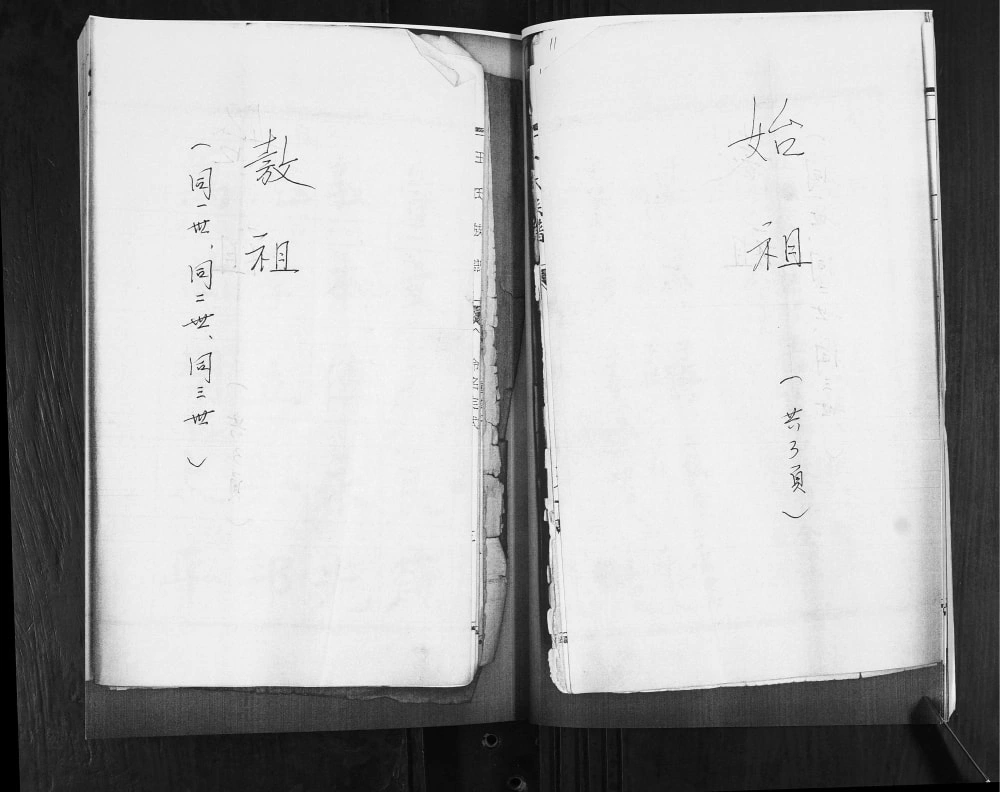 始祖
（共3頁）
敖祖
（同一世、同二世、同三世）
王氏族譜